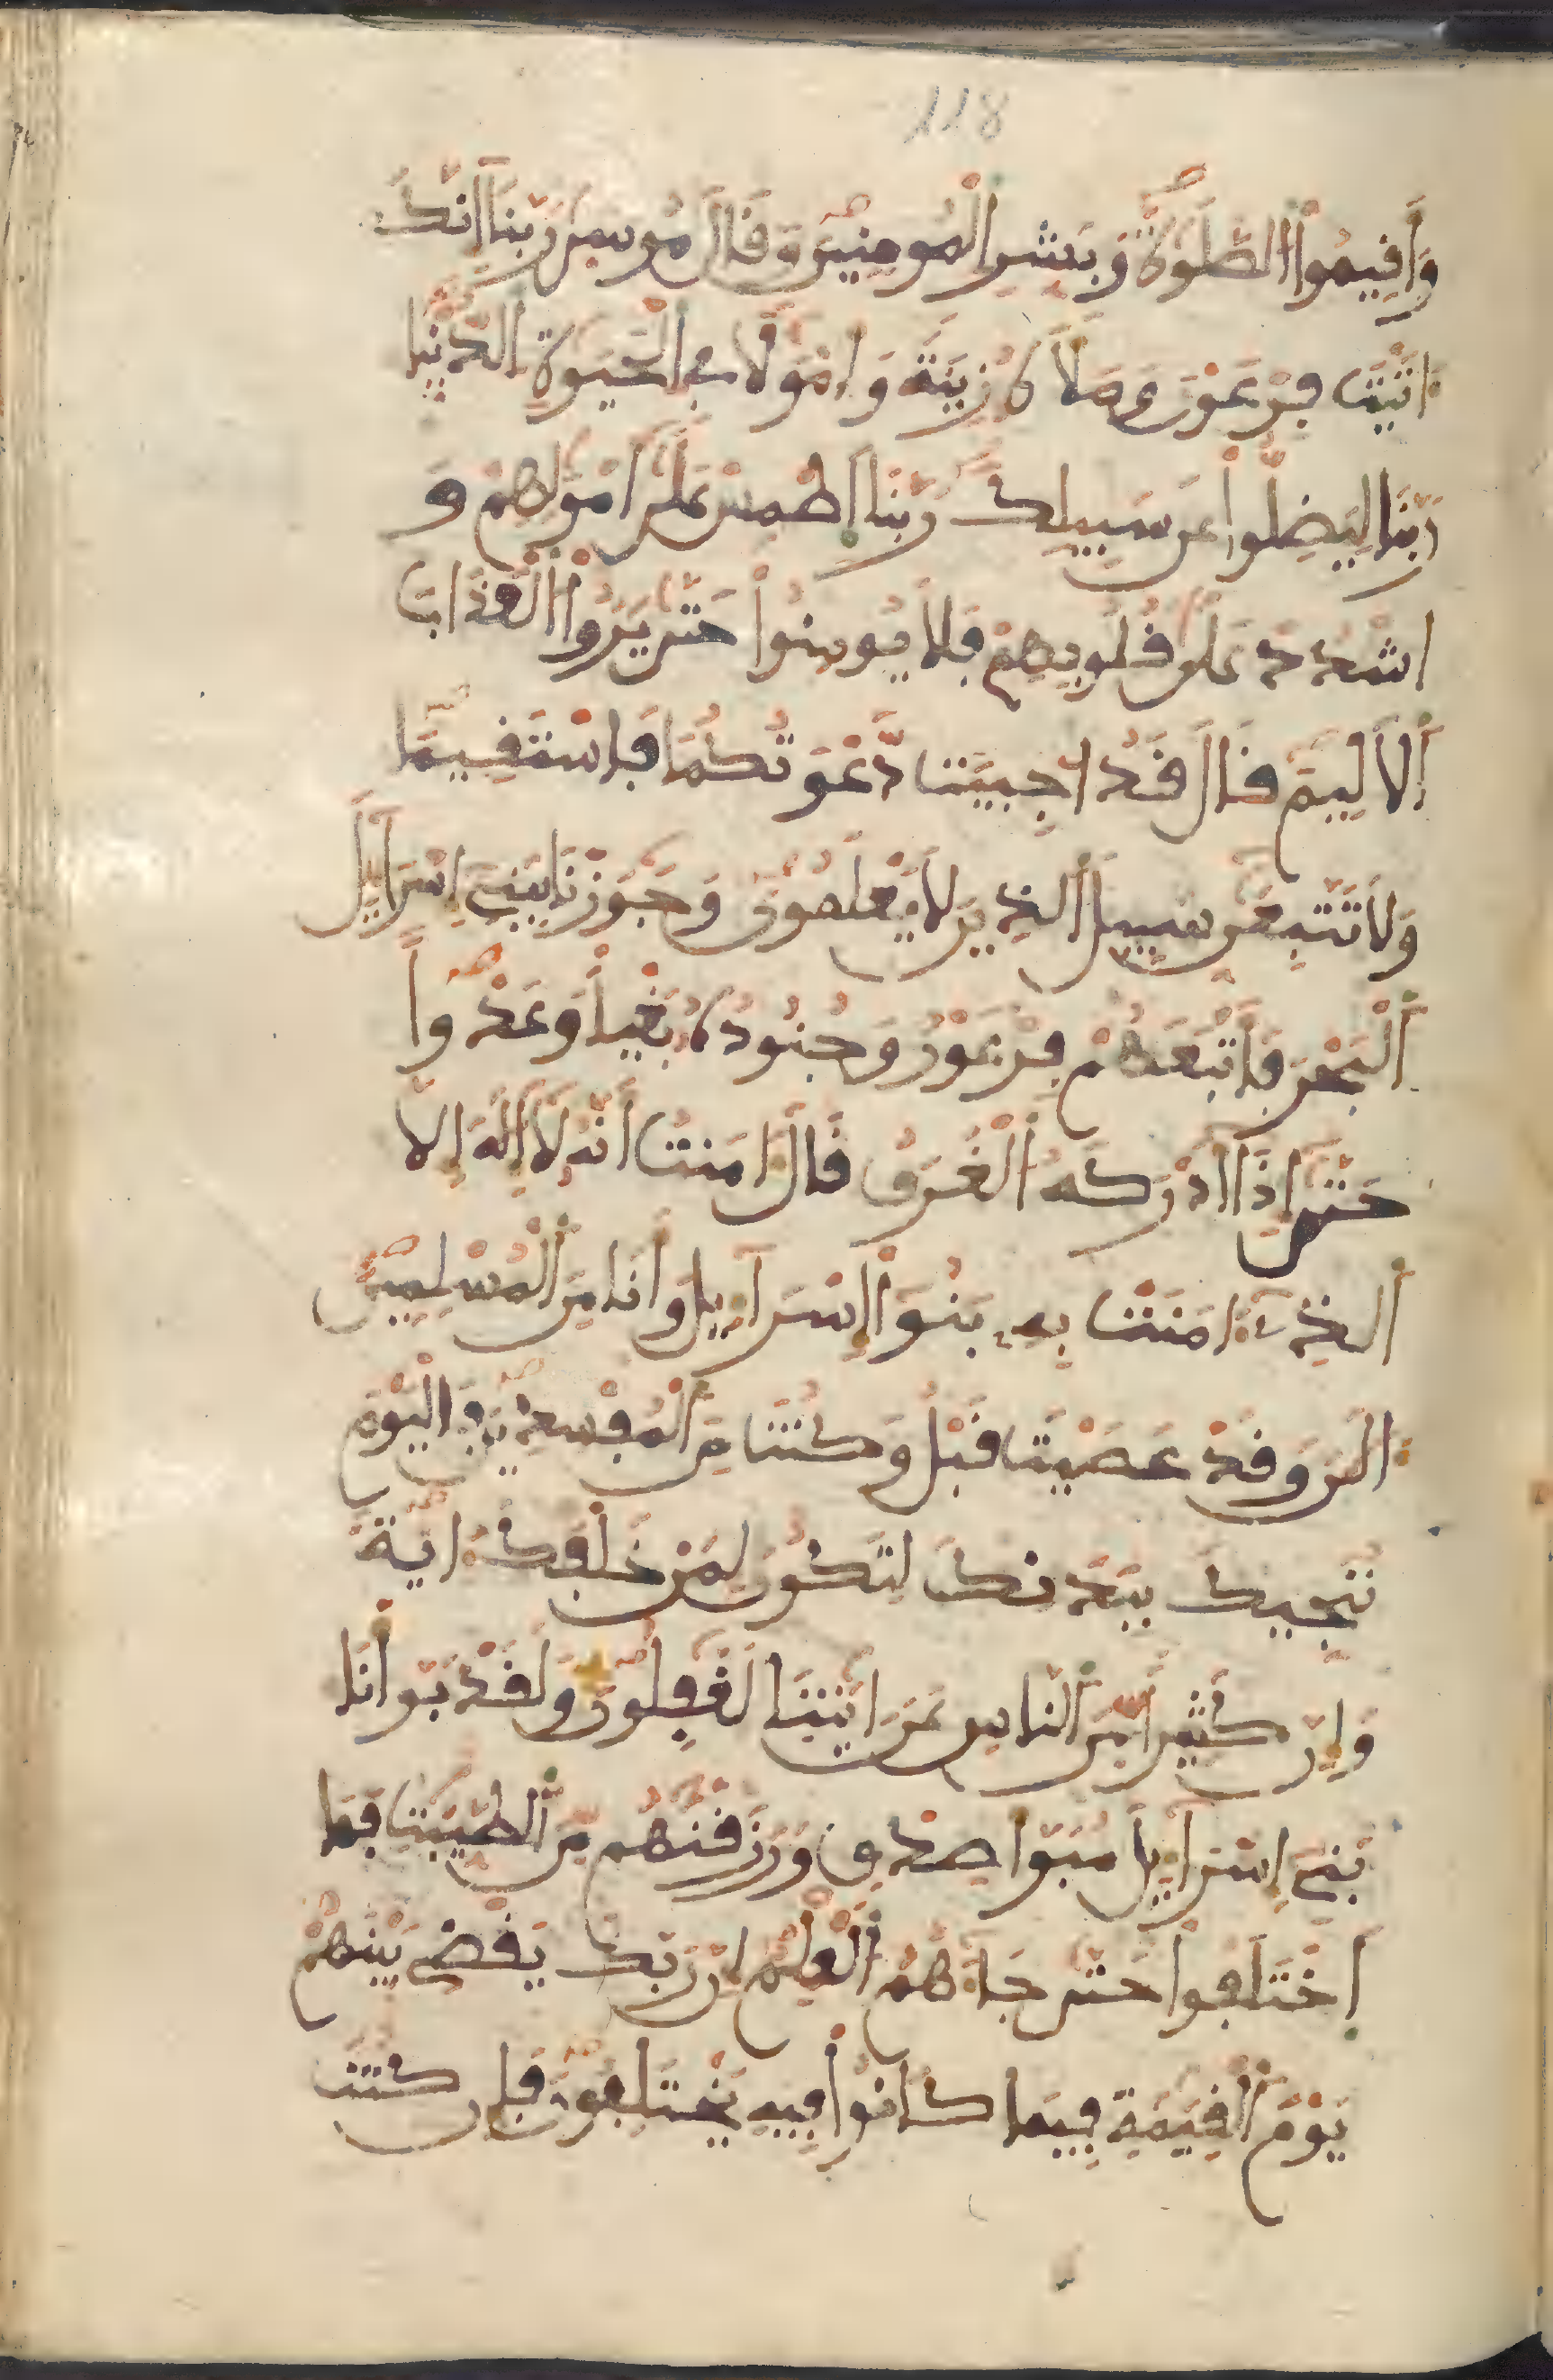 118
وَأَفِيمُواْ الصَّلَوٰةَ وَبَشِّرِ الْمُومِنِينَ وَقَالَ مُوسىٰ رَبَّنَا إِنَّكَ
ءَاتَيْتَ فِرْعَوْنَ وَمَلَأَهُ زِينَةً وَأَمْوَٰلًا فِي الْحَيَوٰةِ الدُّنْيَا
رَبَّنَا لِيَضِلُّواْ عَن سَبِيلِكَ رَبَّنَا اَطْمِسْ عَلَىٰ أَمْوَٰلِهِمْ وَ
اشْدُدْ عَلَىٰ قُلُوبِهِمْ فَلَا يُومِنُواْ حَتَّىٰ يَرَوُاْ الْعَذَابَ
اَلْأَلِيمَ قَالَ قَدُ اجِيبَت دَّعْوَتُكُمَا فَاسْتَقِيمَا
وَلَا تَتَّبِعَٰنِّ سَبِيلَ اَلذِينَ لَا يَعْلَمُونَ وَجَٰوَزْنَا بِبَنِي إِسْرَآءِيلَ
اَلْبَحْرَ فَأَتْبَعَهُمْ فِرْعَوْنُ وَجُنُودُهُ بَغْيًا وَعَدْوًا
حَتَّىٰ إِذَا أَدْرَكَهُ اُلْغَرَقُ قَالَ ءَامَنتُ أَنَّهُ لَا إِلَٰهَ إِلَّا
اَلذِي ءَامَنَتْ بِهِ بَنُواْ إِسْرَآءِيلَ وَأَنَا مِنَ اَلْمُسْلِمِينَ
ءَالَٰنَ وَقَدْ عَصَيْتَ قَبْلُ وَكُنتَ مِنَ اَلْمُفْسِدِينَ فَالْيَوْمَ
نُنَجِّيكَ بِبَدَنِكَ لِتَكُونَ لِمَنْ خَلْفَكَ ءَايَةً
وَإِنَّ كَثِيرًا مِّنَ اَلنَّاسِ عَنَ ايَٰتِنَا لَغَٰفِلُونَ وَلَقَدْ بَوَّأْنَا
بَنِي إِسْرَآءِيلَ مُبَوَّأَ صِدْقٍ وَرَزَقْنَٰهُم مِّنَ اَلطَّيِّبَٰتِ فَمَا
اَخْتَلَفُواْ حَتَّىٰ جَآءَهُمُ اُلْعِلْمُ إِنَّ رَبَّكَ يَقْضِي بَيْنَهُمْ
يَوْمَ اَلْقِيَٰمَةِ فِيمَا كَانُواْ فِيهِ يَخْتَلِفُونَ فَإِن كُنتَ